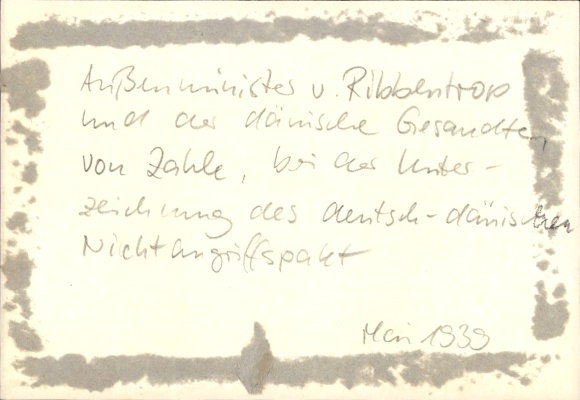 Außenminister v. Ribbentrop
und der dänische Gesandte,
von Zahle, bei der Unter-
zeichnung des deutsch-dänischen
Nichtangriffspakt
Mai 1939